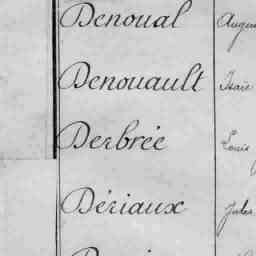 Denoual
Denouault Isaïe
Derbrée Louis
Dériaux Jules